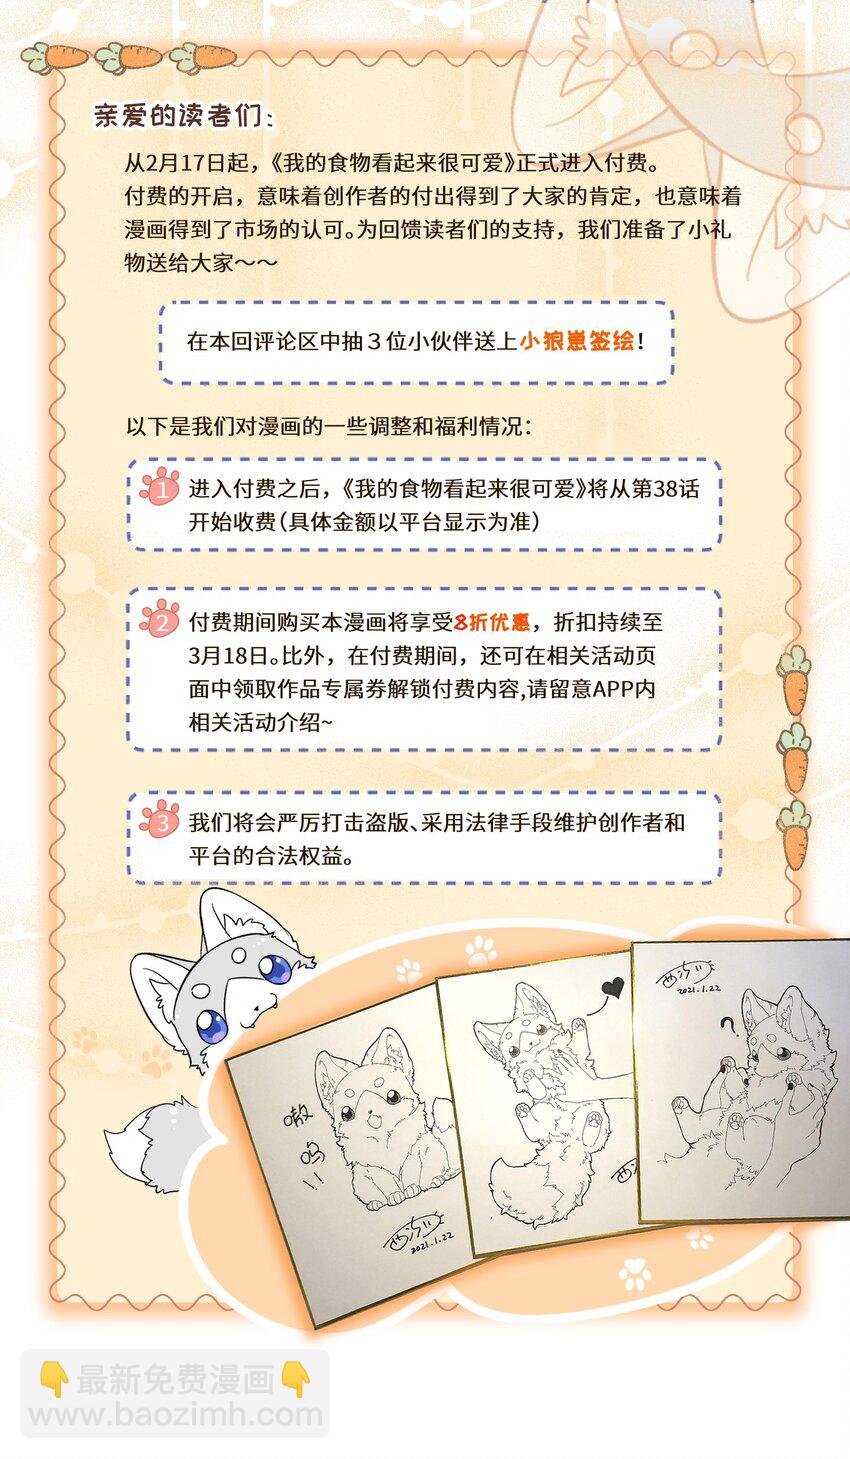 亲爱的读者们：
从2月17日起，《我的食物看起来很可爱》正式进入付费。
付费的开启，意味着创作者的付出得到了大家的肯定，也意味着
漫画得到了市场的认可。为回馈读者们的支持，我们准备了小礼
物送给大家～～
在本回评论区中抽3位小伙伴送上小狼崽签绘！
以下是我们对漫画的一些调整和福利情况：
1 进入付费之后，《我的食物看起来很可爱》将从第38话
开始收费（具体金额以平台显示为准）
2 付费期间购买本漫画将享受8折优惠，折扣持续至
3月18日。比外，在付费期间，还可在相关活动页
面中领取作品专属券解锁付费内容,请留意APP内
相关活动介绍~
3 我们将会严厉打击盗版、采用法律手段维护创作者和
平台的合法权益。
嗷
呜
!!
2021.1.22
?
2021.1.22
最新免费漫画
www.baozimh.com